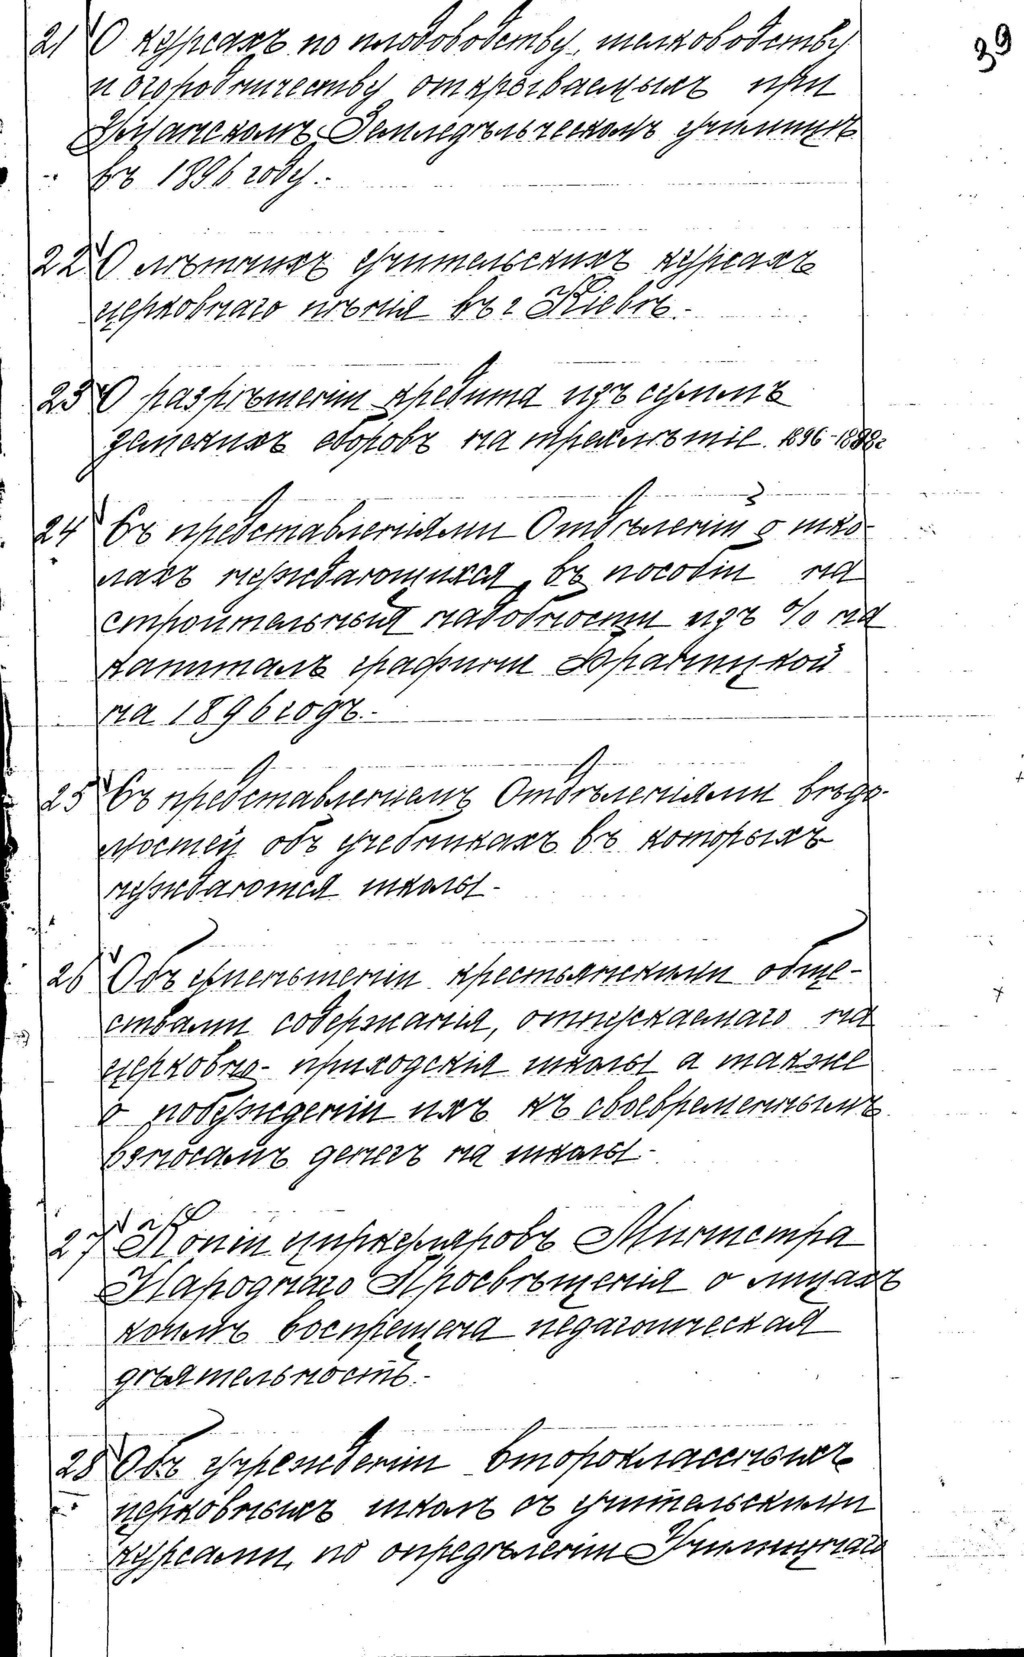 39
21 О курсахъ по плодоводству, шелководству
и огородничеству открываемыхъ при
Уманскомъ Земледѣльческомъ училищѣ
въ 1896 году.-
22 О лѣтнихъ учительскихъ курсахъ
церковнаго пѣнія въ г Кіевѣ.-
23 О разрѣшеніи кредита изъ суммъ
земскихъ сборовъ на трехлѣтіе 1896-1898г
24 Съ представленіями Отдѣленій о шко-
лахъ нуждающихся въ пособіи на
строительныя надобности изъ % на
капиталъ графини Браницкой
на 1896 годъ.-
25 Съ представленіемъ Отдѣленіями вѣдо-
мостей объ учебникахъ въ которыхъ
нуждаются школы.-
26 Объ уменьшеніи крестьянскими обще-
ствами содержанія, отпускаемаго на
церковно-приходскія школы а также
о побужденіи ихъ къ своевременнымъ
взносамъ денегъ на школы.-
27 Копіи циркуляровъ Министра
Народнаго Просвѣщенія о лицахъ
коимъ воспрещена педагогическая
дѣятельность.-
28 Объ учрежденіи второклассныхъ
церковныхъ школъ съ учительскими
курсами, по опредѣленіи Училищнаго